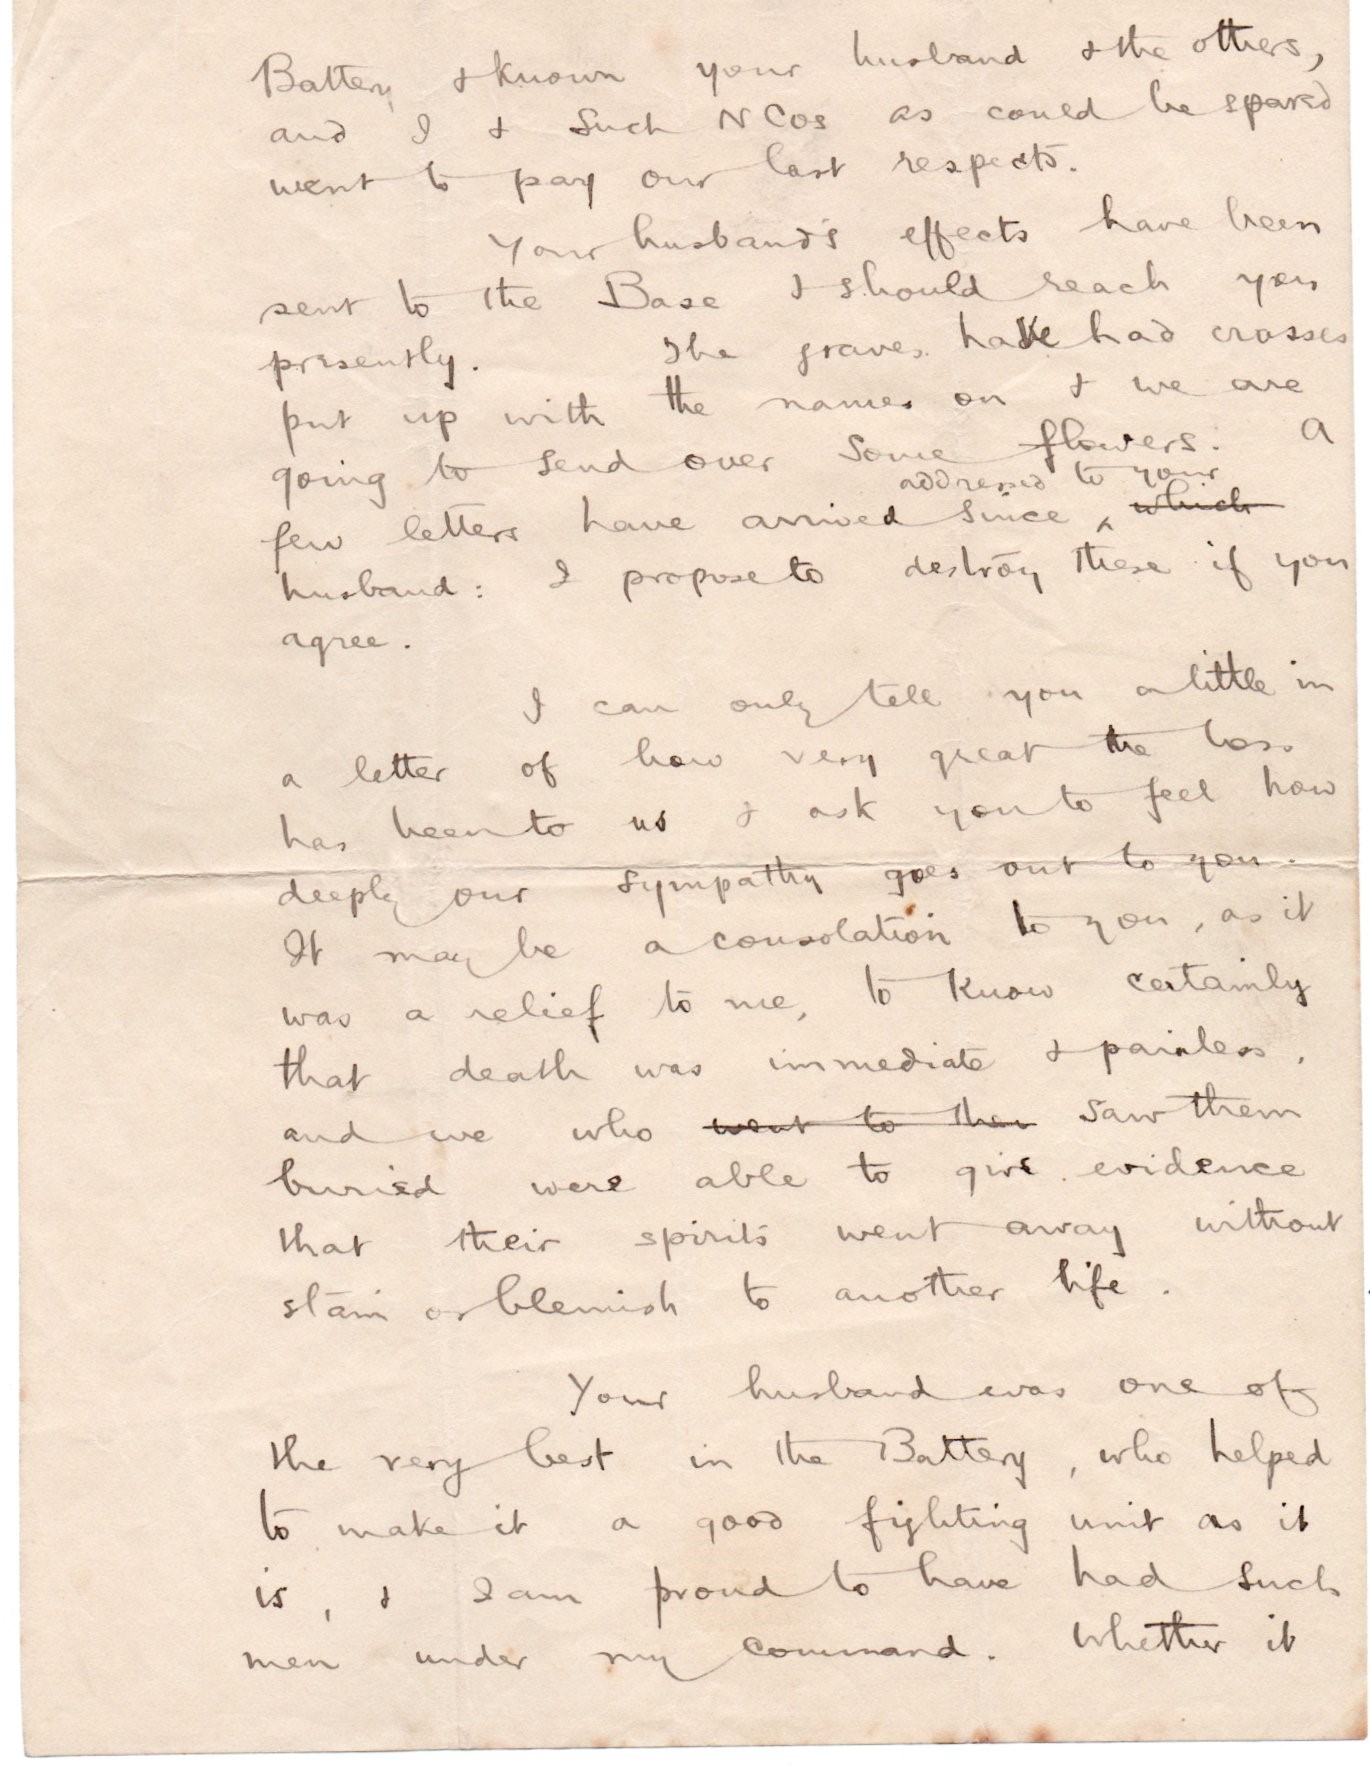 Battery & known your husband & the others,
and I & such NCOs as could be spared
went to pay our last respects.
Your husband's effects have been
sent to the Base & should reach you
presently. The graves have had crosses
put up with the names on & we are
going to send over some flowers. A
addressed to your
few letters have arrived since ^ which
husband: I propose to destroy these if you
agree.
I can only tell you a little in
a letter of how very great the loss
has been to us & ask you to feel how
deeply our sympathy goes out to you.
It may be a consolation to you, as it
was a relief to me, to know certainly
that death was immediate & painless,
and we who went to them saw them
buried were able to give evidence
that their spirits went away without
stain or blemish to another life.
Your husband was one of
the very best in the Battery, who helped
to make it a good fighting unit as it
is, & I am proud to have had such
men under my command. Whether it